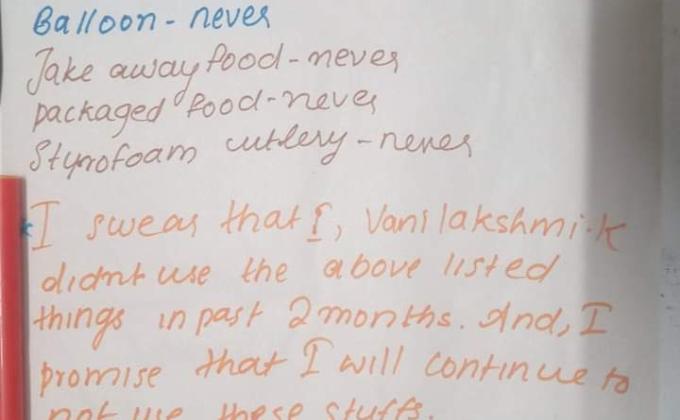 Balloon - never
Take away food - never
packaged food - never
Styrofoam cutlery - never
I swear that I, Vanilakshmi.K
didnt use the above listed
things in past 2 months. And, I
promise that I will continue to
not use these stuffs.